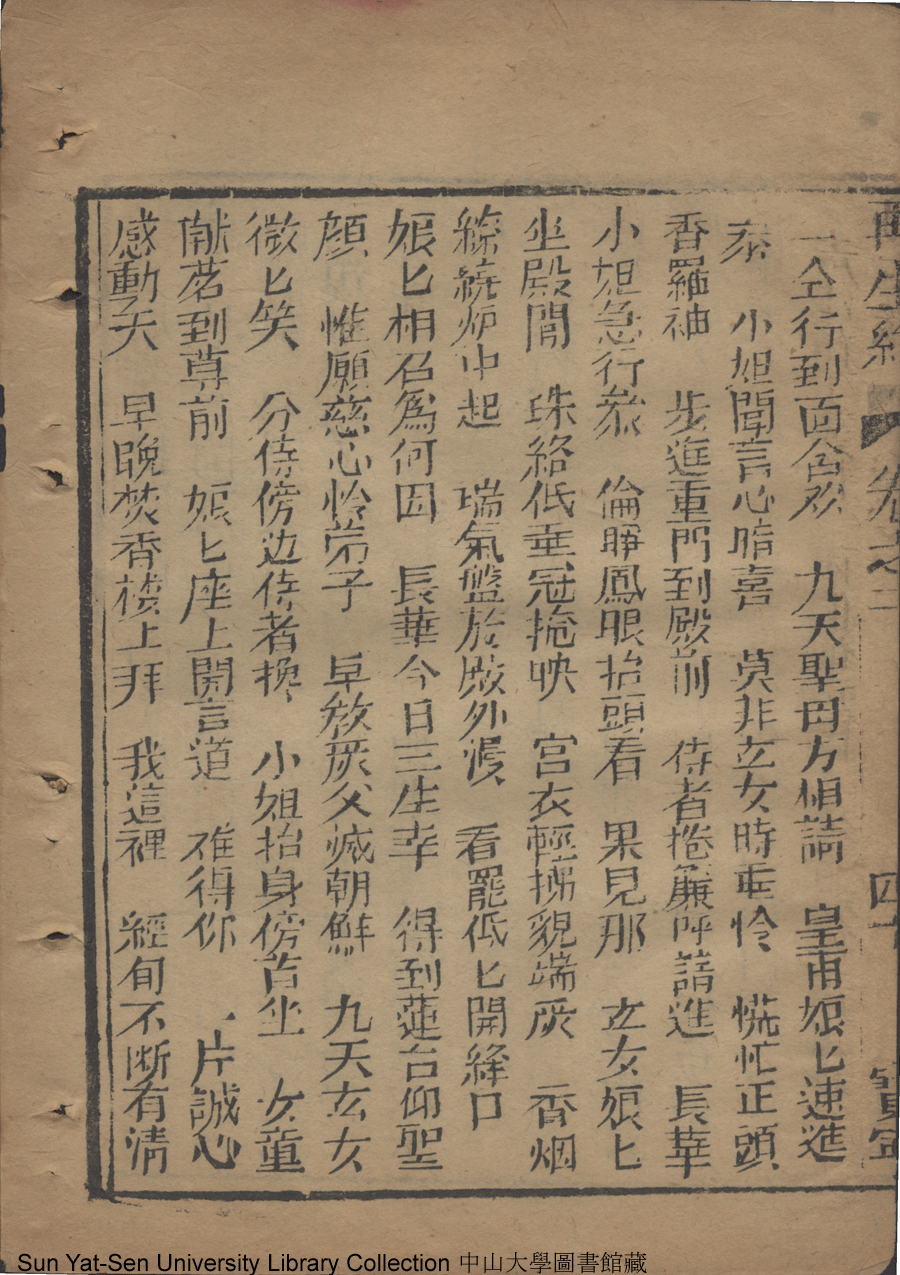 再生緣 卷之二 四十 寶寧
一仝行到面含欢 九天聖母方相請 皇甫娘匕速進
泰 小姐聞言心暗喜 莫非玄女時垂怜 慌忙正頭
香羅袖 步進重門到殿前 侍者捲簾呼請進 長華
小姐急行叅 倫睜鳳眼抬頭看 果見那 玄女娘匕
坐殿間 珠絡低垂冠掩映 宫衣輕拂貌端庄 香烟
繚繞炉中起 瑞氣盤於殿外漫 看罷低匕開絳口
娘匕相召為何因 長華今日三生幸 得到蓮台仰聖
顔 惟願慈心怜弟子 早救灰父滅朝鮮 九天玄女
微匕笑 分侍傍边侍者搀 小姐抬身傍首坐 女童
献茗到尊前 娘匕座上開言道 难得你 一片誠心
感動天 早晚焚香楼上拜 我這裡 經旬不断有清
Sun Yat-Sen University Library Collection 中山大學圖書館藏